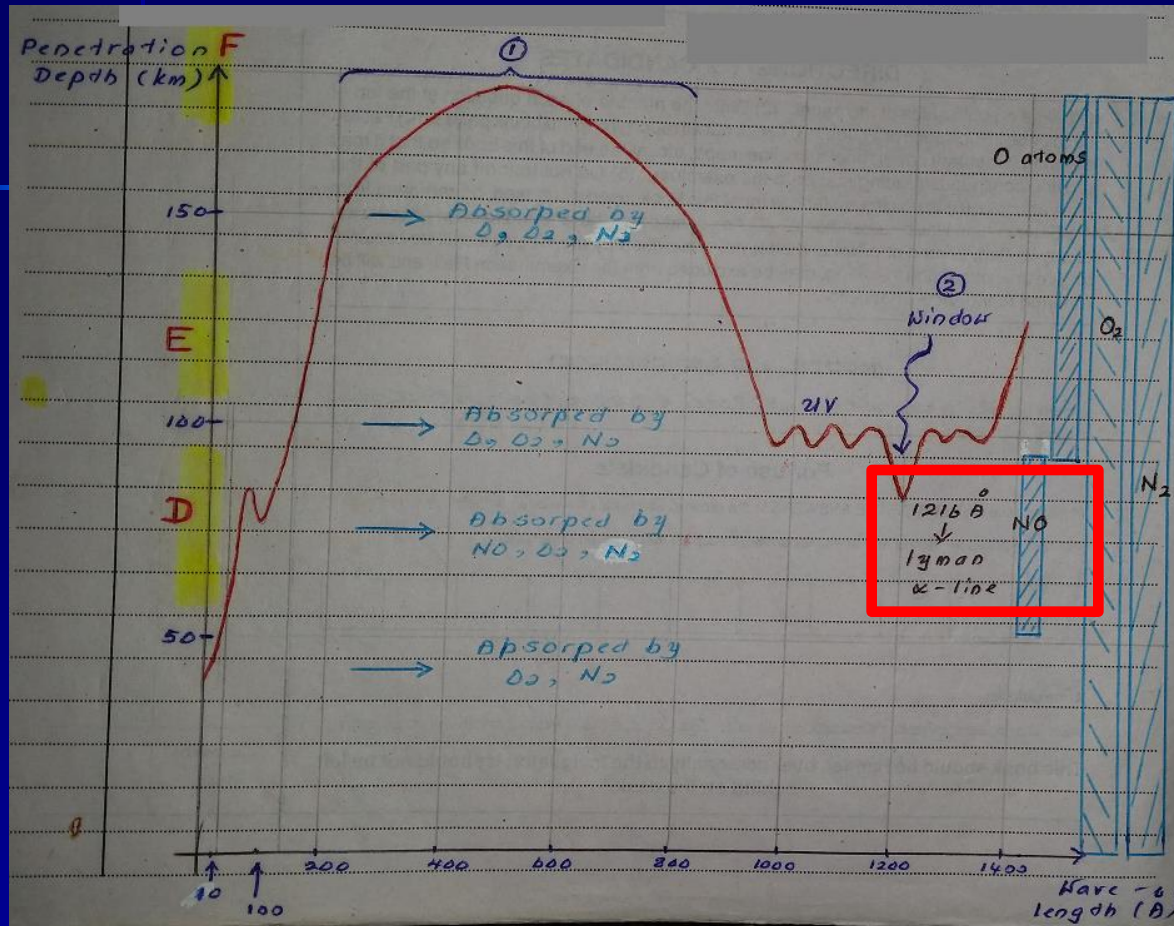 Penetration F
Depth (km)
①
O atoms
150
Absorped by
O, O2, N2
②
Window
E
O2
100
Absorped by
O, O2, N2
UV
D
Absorped by
NO, O2, N2
1216 Å
NO
N2
lyman
α-line
50
Absorped by
O2, N2
200
400
600
800
1000
1200
1400
10
100
Wave-
length (Å)